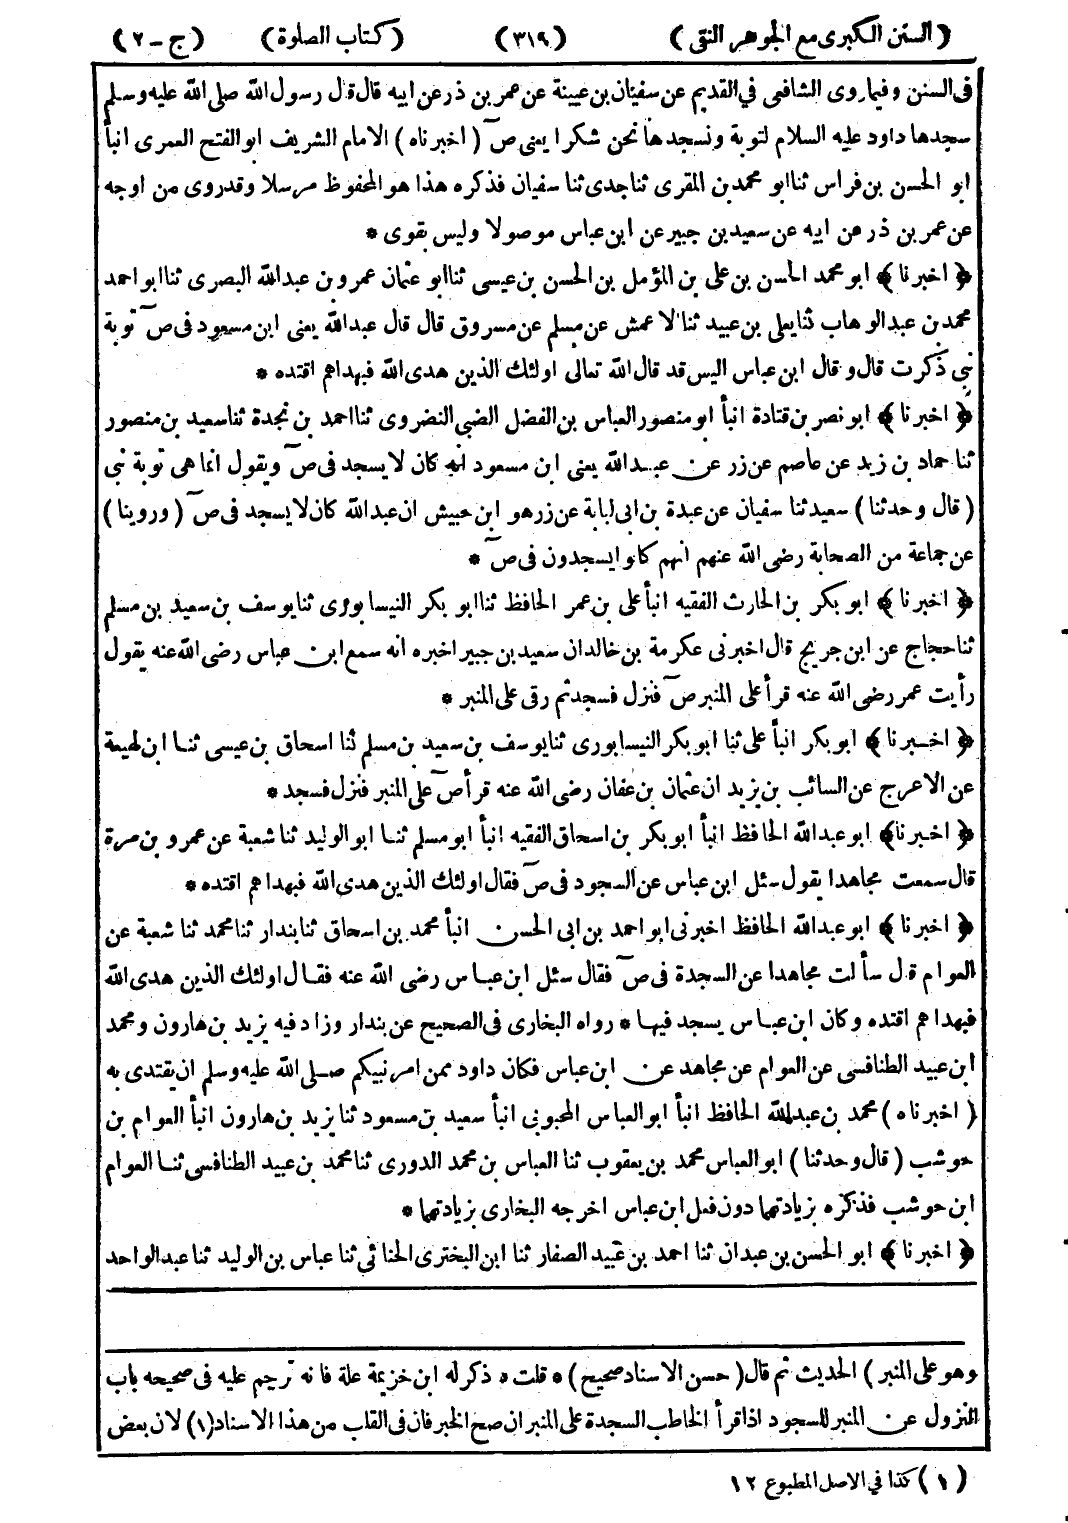 (السنن الكبرى مع الجوهر النقى) (٣١٩) (كتاب الصلوة) (ج-٢)
فى السنن وفيما روى الشافعى فى القديم عن سفيان بن عيينة عن عمر بن ذر عن ابيه قال قال رسول الله صلى الله عليه وسلم
سجدها داود عليه السلام لتوبة ونسجدها نحن شكرا يعنى صٓ (اخبرناه) الامام الشريف ابو الفتح العمرى انبأ
ابو الحسن بن فراس ثنا ابو محمد بن المقرى ثنا جدى ثنا سفيان فذكره هذا هو المحفوظ مرسلا وقد روى من اوجه
عن عمر بن ذر عن ابيه عن سعيد بن جبير عن ابن عباس موصولا وليس بقوى *
﴿اخبرنا﴾ ابو محمد الحسن بن على بن المؤمل بن الحسن بن عيسى ثنا ابو عثمان عمرو بن عبد الله البصرى ثنا ابو احمد
محمد بن عبد الوهاب ثنا يعلى بن عبيد ثنا الاعمش عن مسلم عن مسروق قال قال عبد الله يعنى ابن مسعود فى صٓ توبة
نبى ذكرت قال وقال ابن عباس اليس قد قال الله تعالى اولئك الذين هدى الله فبهداهم اقتده *
﴿اخبرنا﴾ ابو نصر بن قتادة انبأ ابو منصور العباس بن الفضل الضبى النضروى ثنا احمد بن نجدة ثنا سعيد بن منصور
ثنا حماد بن زيد عن عاصم عن زر عن عبد الله يعنى ابن مسعود انه كان لا يسجد فى صٓ ويقول انما هى توبة نبى
(قال وحدثنا) سعيد ثنا سفيان عن عبدة بن ابى لبابة عن زر هو ابن حبيش ان عبد الله كان لا يسجد فى صٓ (وروينا)
عن جماعة من الصحابة رضى الله عنهم انهم كانوا يسجدون فى صٓ *
﴿اخبرنا﴾ ابو بكر بن الحارث الفقيه انبأ على بن عمر الحافظ ثنا ابو بكر النيسابورى ثنا يوسف بن سعيد بن مسلم
ثنا حجاج عن ابن جريج قال اخبرنى عكرمة بن خالد ان سعيد بن جبير اخبره انه سمع ابن عباس رضى الله عنه يقول
رأيت عمر رضى الله عنه قرأ على المنبر صٓ فنزل فسجد ثم رقى على المنبر *
﴿اخبرنا﴾ ابو بكر انبأ على ثنا ابو بكر النيسابورى ثنا يوسف بن سعيد بن مسلم ثنا اسحاق بن عيسى ثنا ابن لهيعة
عن الاعرج عن السائب بن يزيد ان عثمان بن عفان رضى الله عنه قرأ صٓ على المنبر فنزل فسجد *
﴿اخبرنا﴾ ابو عبد الله الحافظ انبأ ابو بكر بن اسحاق الفقيه انبأ ابو مسلم ثنا ابو الوليد ثنا شعبة عن عمرو بن مرة
قال سمعت مجاهدا يقول سئل ابن عباس عن السجود فى صٓ فقال اولئك الذين هدى الله فبهداهم اقتده *
﴿اخبرنا﴾ ابو عبد الله الحافظ اخبرنى ابو احمد بن ابى الحسن انبأ محمد بن اسحاق ثنا بندار ثنا محمد ثنا شعبة عن
العوام قال سألت مجاهدا عن السجدة فى صٓ فقال سئل ابن عباس رضى الله عنه فقال اولئك الذين هدى الله
فبهداهم اقتده وكان ابن عباس يسجد فيها * رواه البخارى فى الصحيح عن بندار وزاد فيه يزيد بن هارون ومحمد
ابن عبيد الطنافسى عن العوام عن مجاهد عن ابن عباس فكان داود ممن امر نبيكم صلى الله عليه وسلم ان يقتدى به
(اخبرناه) محمد بن عبد الله الحافظ انبأ ابو العباس المحبوبى انبأ سعيد بن مسعود ثنا يزيد بن هارون انبأ العوام بن
حوشب (قال وحدثنا) ابو العباس محمد بن يعقوب ثنا العباس بن محمد الدورى ثنا محمد بن عبيد الطنافسى ثنا العوام
ابن حوشب فذكره بزيادتهما دون فعل ابن عباس اخرجه البخارى بزيادتهما *
﴿اخبرنا﴾ ابو الحسن بن عبدان ثنا احمد بن عبيد الصفار ثنا ابن البخترى الحنائى ثنا عباس بن الوليد ثنا عبد الواحد
وهو على المنبر) الحديث ثم قال (حسن الاسناد صحيح) * قلت * ذكر له ابن خزيمة علة فانه ترجم عليه فى صحيحه باب
النزول عن المنبر للسجود اذا قرأ الخاطب السجدة على المنبر ان صح الخبر فان فى القلب من هذا الاسناد (١) لان بعض
(١) كذا فى الاصل المطبوع ١٢